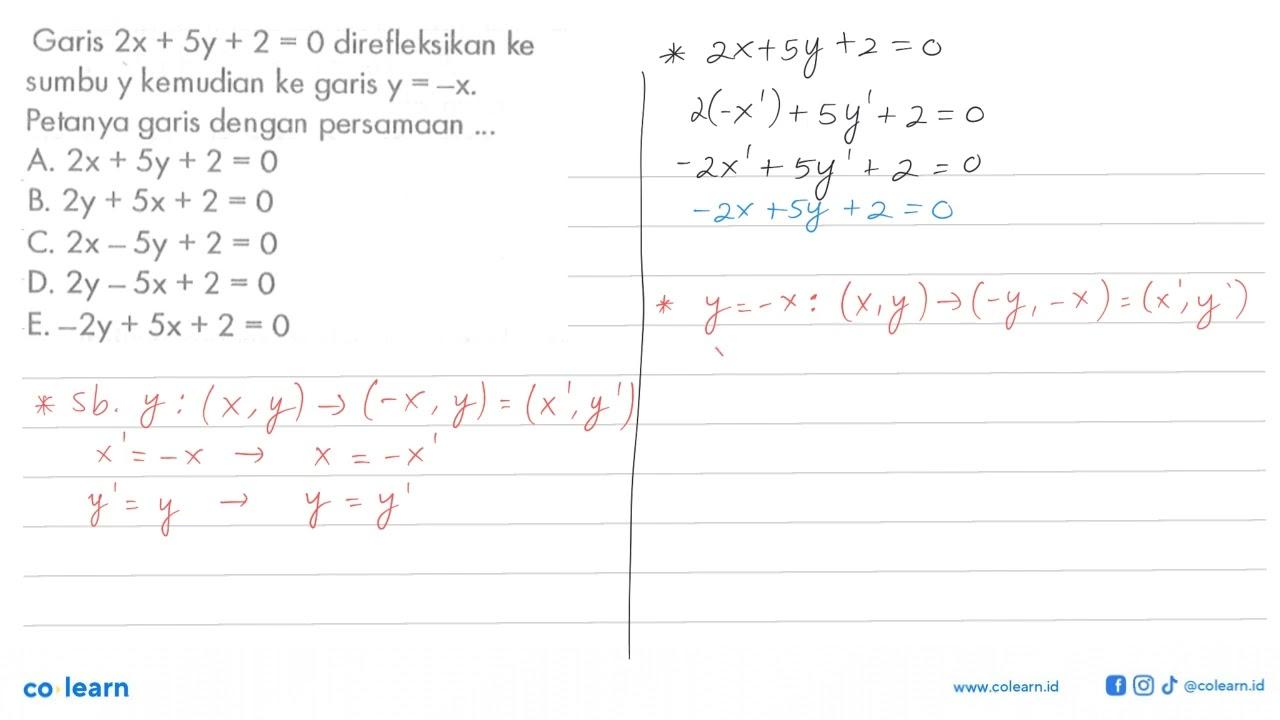 Garis 2x + 5y + 2 = 0 direfleksikan ke
sumbu y kemudian ke garis y = –x.
Petanya garis dengan persamaan ...
A. 2x + 5y + 2 = 0
B. 2y + 5x + 2 = 0
C. 2x – 5y + 2 = 0
D. 2y – 5x + 2 = 0
E. –2y + 5x + 2 = 0
* sb. y : (x, y) → (-x, y) = (x', y')
x' = -x → x = -x'
y' = y → y = y'
* 2x + 5y + 2 = 0
2(-x') + 5y' + 2 = 0
-2x' + 5y' + 2 = 0
-2x + 5y + 2 = 0
* y = -x : (x, y) → (-y, -x) = (x', y')
co learn
www.colearn.id
@colearn.id